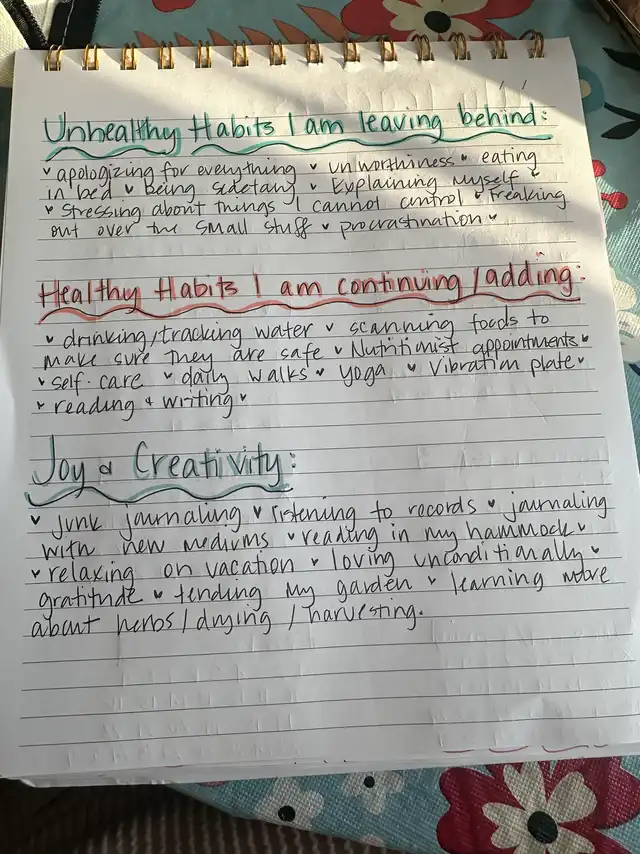 Unhealthy Habits I am leaving behind:
♥ apologizing for everything ♥ unworthiness ♥ eating
in bed ♥ Being sedetary ♥ Explaining Myself ♥
♥ Stressing about things I cannot control ♥ Freaking
out over the small stuff ♥ procrastination ♥
Healthy Habits I am continuing/adding:
♥ drinking/tracking water ♥ scanning foods to
make sure they are safe ♥ Nutritionist appointments ♥
♥ self-care ♥ daily walks ♥ yoga ♥ Vibration plate ♥
♥ reading & writing ♥
Joy & Creativity:
♥ junk journaling ♥ listening to records ♥ journaling
with new mediums ♥ reading in my hammock ♥
♥ relaxing on vacation ♥ loving unconditionally ♥
gratitude ♥ tending my garden ♥ learning more
about herbs/drying/harvesting.